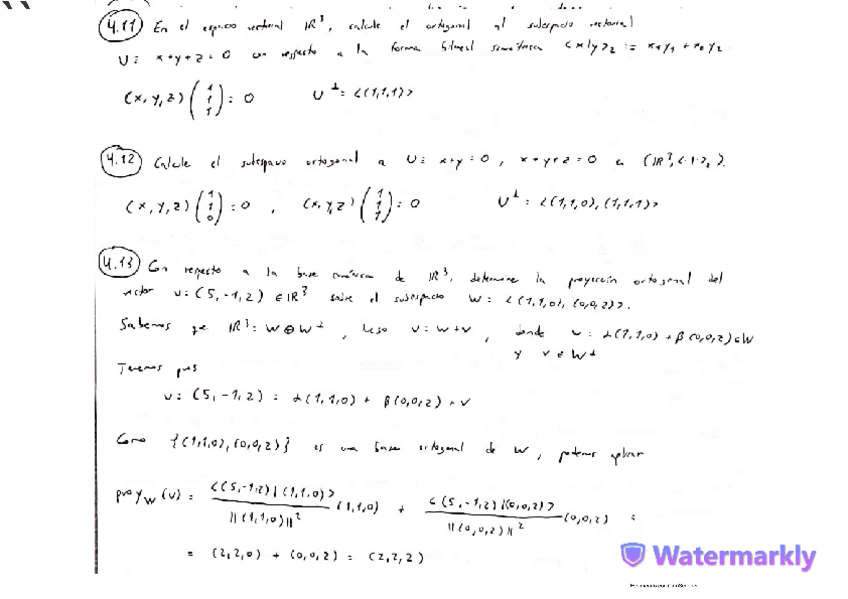 4.11 En el espacio vectorial IR³, calcule el ortogonal al subespacio vectorial
U: x+y+z=0 con respecto a la forma bilineal simétrica <x|y>₂ := x₁y₁ + x₂y₂
(x,y,z) (1 1 1) = 0 U⊥ = <(1,1,1)>
4.12 Calcule el subespacio ortogonal a U = x+y=0, x+y+z=0 en (IR³,<·|·>₂).
(x,y,z) (1 1 0) = 0, (x,y,z) (1 1 1) = 0 U⊥ = <(1,1,0), (1,1,1)>
4.13 Con respecto a la base canónica de IR³, determine la proyección ortogonal del
vector u=(5,-1,2) ∈ IR³ sobre el subespacio W = <(1,1,0), (0,0,2)>.
Sabemos que IR³ = W ⊕ W⊥, luego u = w+v, donde w = α(1,1,0) + β(0,0,2) ∈ W
y v ∈ W⊥
Tenemos pues
u = (5,-1,2) = α(1,1,0) + β(0,0,2) + v
Como {(1,1,0), (0,0,2)} es una base ortogonal de W, podemos aplicar
proy_W(u) = <(5,-1,2)|(1,1,0)> / ||(1,1,0)||² (1,1,0) + <(5,-1,2)|(0,0,2)> / ||(0,0,2)||² (0,0,2) =
= (2,2,0) + (0,0,2) = (2,2,2)
Watermarkly